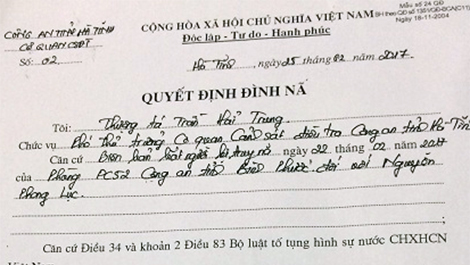 CÔNG AN TỈNH HÀ TĨNH
CƠ QUAN CSĐT
Số: 02
CỘNG HÒA XÃ HỘI CHỦ NGHĨA VIỆT NAM
Độc lập - Tự do - Hạnh phúc
Mẫu số 24 GĐ
BH theo QĐ số 135/VQĐ-BCA(C11)
Ngày 18-11-2004
Hà Tĩnh, ngày 25 tháng 02 năm 2017
QUYẾT ĐỊNH ĐÌNH NÃ
Tôi: Thượng tá Trần Hải Trung.
Chức vụ Phó thủ trưởng Cơ quan Cảnh sát điều tra Công an tỉnh Hà Tĩnh
Căn cứ Biên bản bắt người bị truy nã ngày 22 tháng 02 năm 2017
của Phòng PC52 Công an tỉnh Bình Phước đối với Nguyễn
Phong Lục.
Căn cứ Điều 34 và khoản 2 Điều 83 Bộ luật tố tụng hình sự nước CHXHCN
Việt Nam